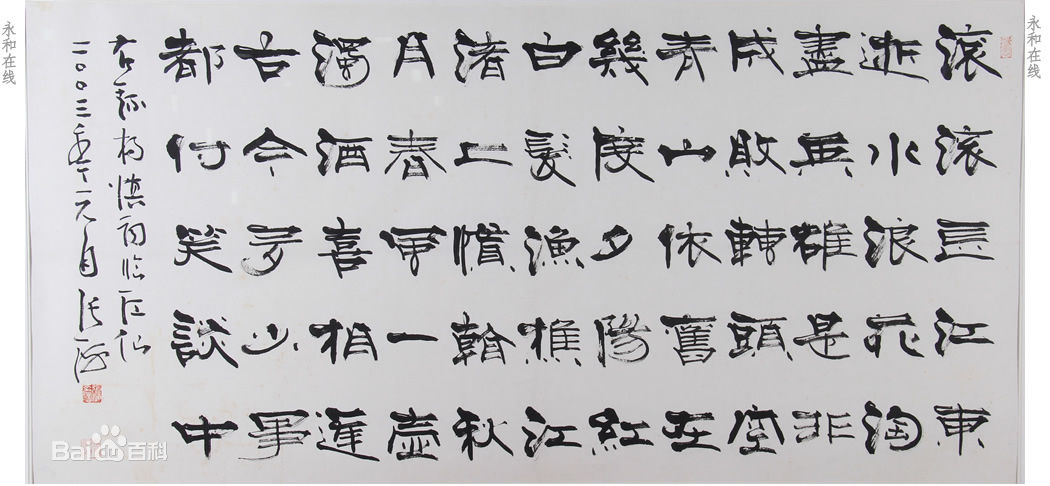 滚滚長江東
逝水浪花淘
盡英雄是非
成敗轉頭空
青山依舊在
幾度夕陽紅
白髮漁樵江
渚上慣看秋
月春風一壺
濁酒喜相逢
古今多少事
都付笑談中
右錄楊慎詞臨江仙
二〇〇三年十一月張
永和在线
永和在线
Baidu百科